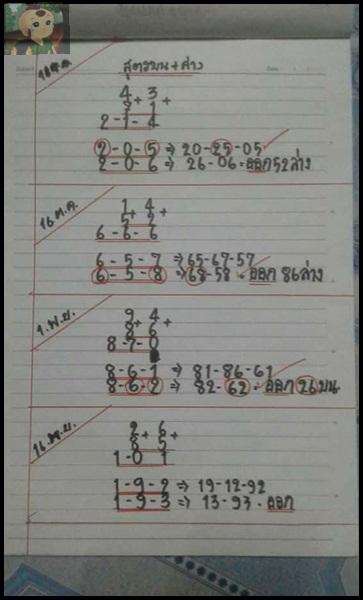 สูตรบน+ล่าง
1 ต.ค.
4 3
+ +
3 1
2-1-4
2-0-5 ⇒ 20-25-05 ✓
2-0-6 ⇒ 26-06 = ออก 52 ล่าง
16 ต.ค.
1 4
+ +
5 2
6-6-6
6-5-7 ⇒ 65-67-57
6-5-8 ⇒ 68-58 ✓ ออก 86 ล่าง
1.พ.ย.
9 4
+ +
8 6
8-7-0
8-6-1 ⇒ 81-86-61
8-6-2 ⇒ 82-62 = ออก 26 บน
16 พ.ย.
2 6
+ +
8 5
1-0 1
1-9-2 ⇒ 19-12-92
1-9-3 ⇒ 13-93 . ออก